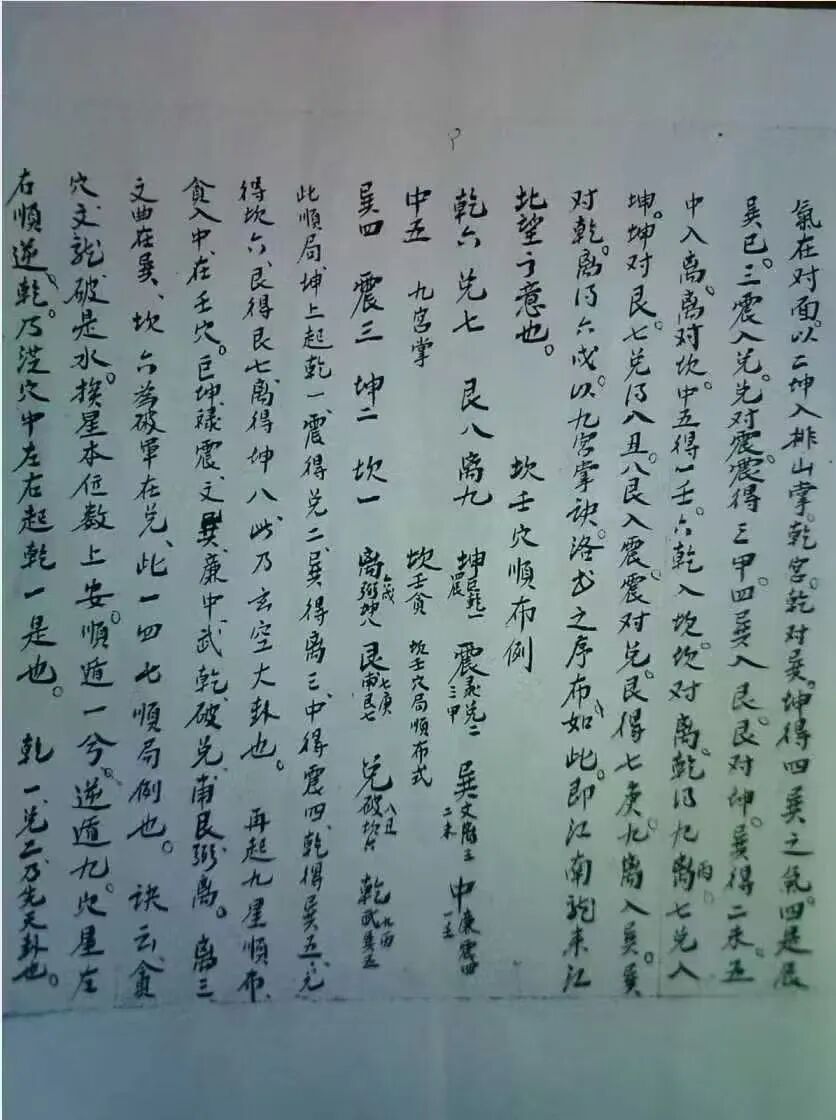 氣在对面。以二坤入排山掌。乾宮。乾对巽。坤得四巽之氣。四是辰
巽巳。三震入兑。兑对震。震得三甲。四巽入艮。艮对坤。巽得二未。五
中入离。离对坎。中五得一壬。六乾入坎。坎对离。乾乃九离丙。七兑入
坤。坤对艮。七兑乃八丑。八艮入震。震对兑。艮得七庚。九离入巽。巽
对乾。离乃六戍。以九宮掌诀。洛书之序布如此。即江南龍来江
北望之意也。
坎壬穴順布例
乾六 兑七 艮八 离九
中五 九宮掌
巽四 震三 坤二 坎一
坤 巨乾一
震 禄兑二 三甲
巽 文离三 二未
中 廉震四 一壬
坎壬貪 坎壬穴局順布式
离 弼坤八 六戍
艮 甫艮七 七庚
兑 破坎六 八丑
乾 武巽五 九丙
此順局。坤上起乾一、震得兑二、巽得离三、中得震四、乾得巽五、兑
得坎六、艮得艮七、离得坤八、此乃玄空大卦也。 再起九星順布、
貪入中、在壬穴。巨坤禄震、文巽、廉中武乾、破兑、甫艮弼离。 离三
文曲在巽、坎六為破軍在兑、此一四七順局例也。 诀云、貪
穴文龍破是水。挨星本位数上安。順遁一兮、逆遁九。穴星左
右順逆。乾乃从穴中左右起乾一是也。 乾一、兑二乃先天卦也。